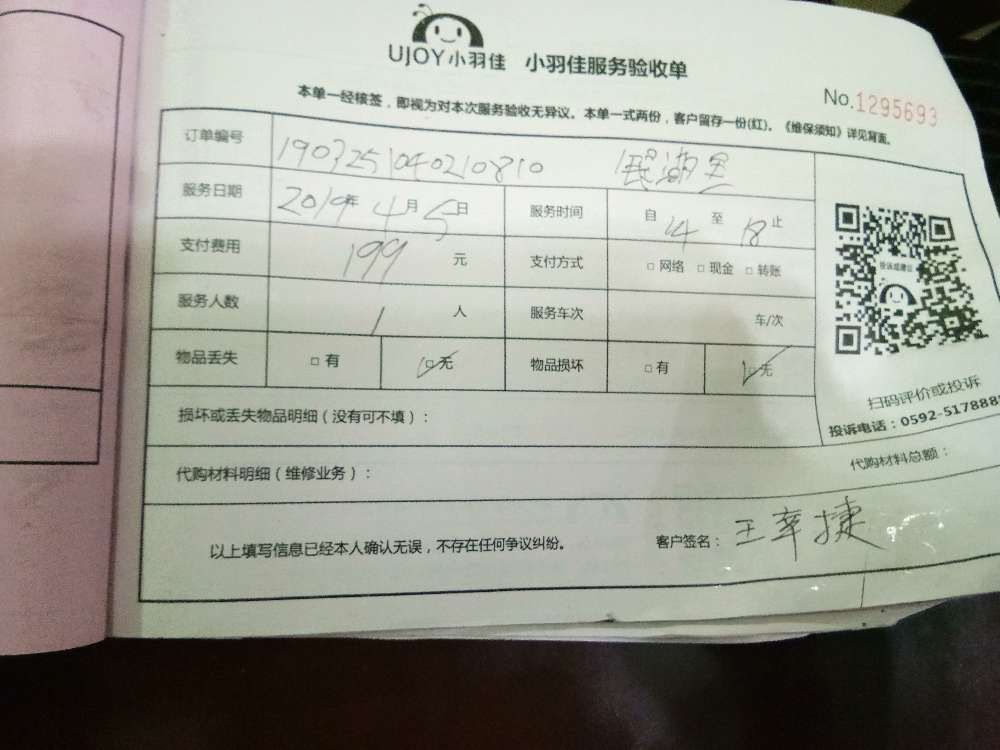 UJOY小羽佳 小羽佳服务验收单
No.1295693
本单一经核签，即视为对本次服务验收无异议。本单一式两份，客户留存一份(红)。《维保须知》详见背面。
订单编号 1903251040210810
服务日期 2019年4月5日 服务时间 自14至18止
支付费用 199元 支付方式 □网络 □现金 □转账
服务人数 1人 服务车次 车/次
物品丢失 □有 ☑无 物品损坏 □有 ☑无
投诉或建议
扫码评价或投诉
投诉电话：0592-517888
损坏或丢失物品明细（没有可不填）：
代购材料明细（维修业务）： 代购材料总额：
以上填写信息已经本人确认无误，不存在任何争议纠纷。 客户签名：王幸捷